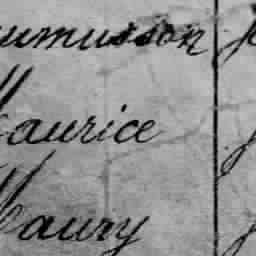 aumusson
Maurice
Maury